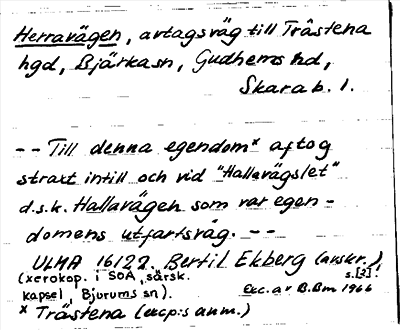 Herravägen, avtagsväg till Trästena
hgd, Bjärka sn, Gudhems hd,
Skarab. l.
-- Till denna egendom* aftog
straxt intill och vid "Hallavägslet"
d.s.k. Hallavägen som var egen-
domens utfartsväg. --
ULMA 16122. Bertil Ekberg (avskr.)
(xerokop. i SOA, särsk. s.[3]!
kapsel, Bjurums sn). Exc. av B.Bm 1966
* Trästena (excp:s anm.)